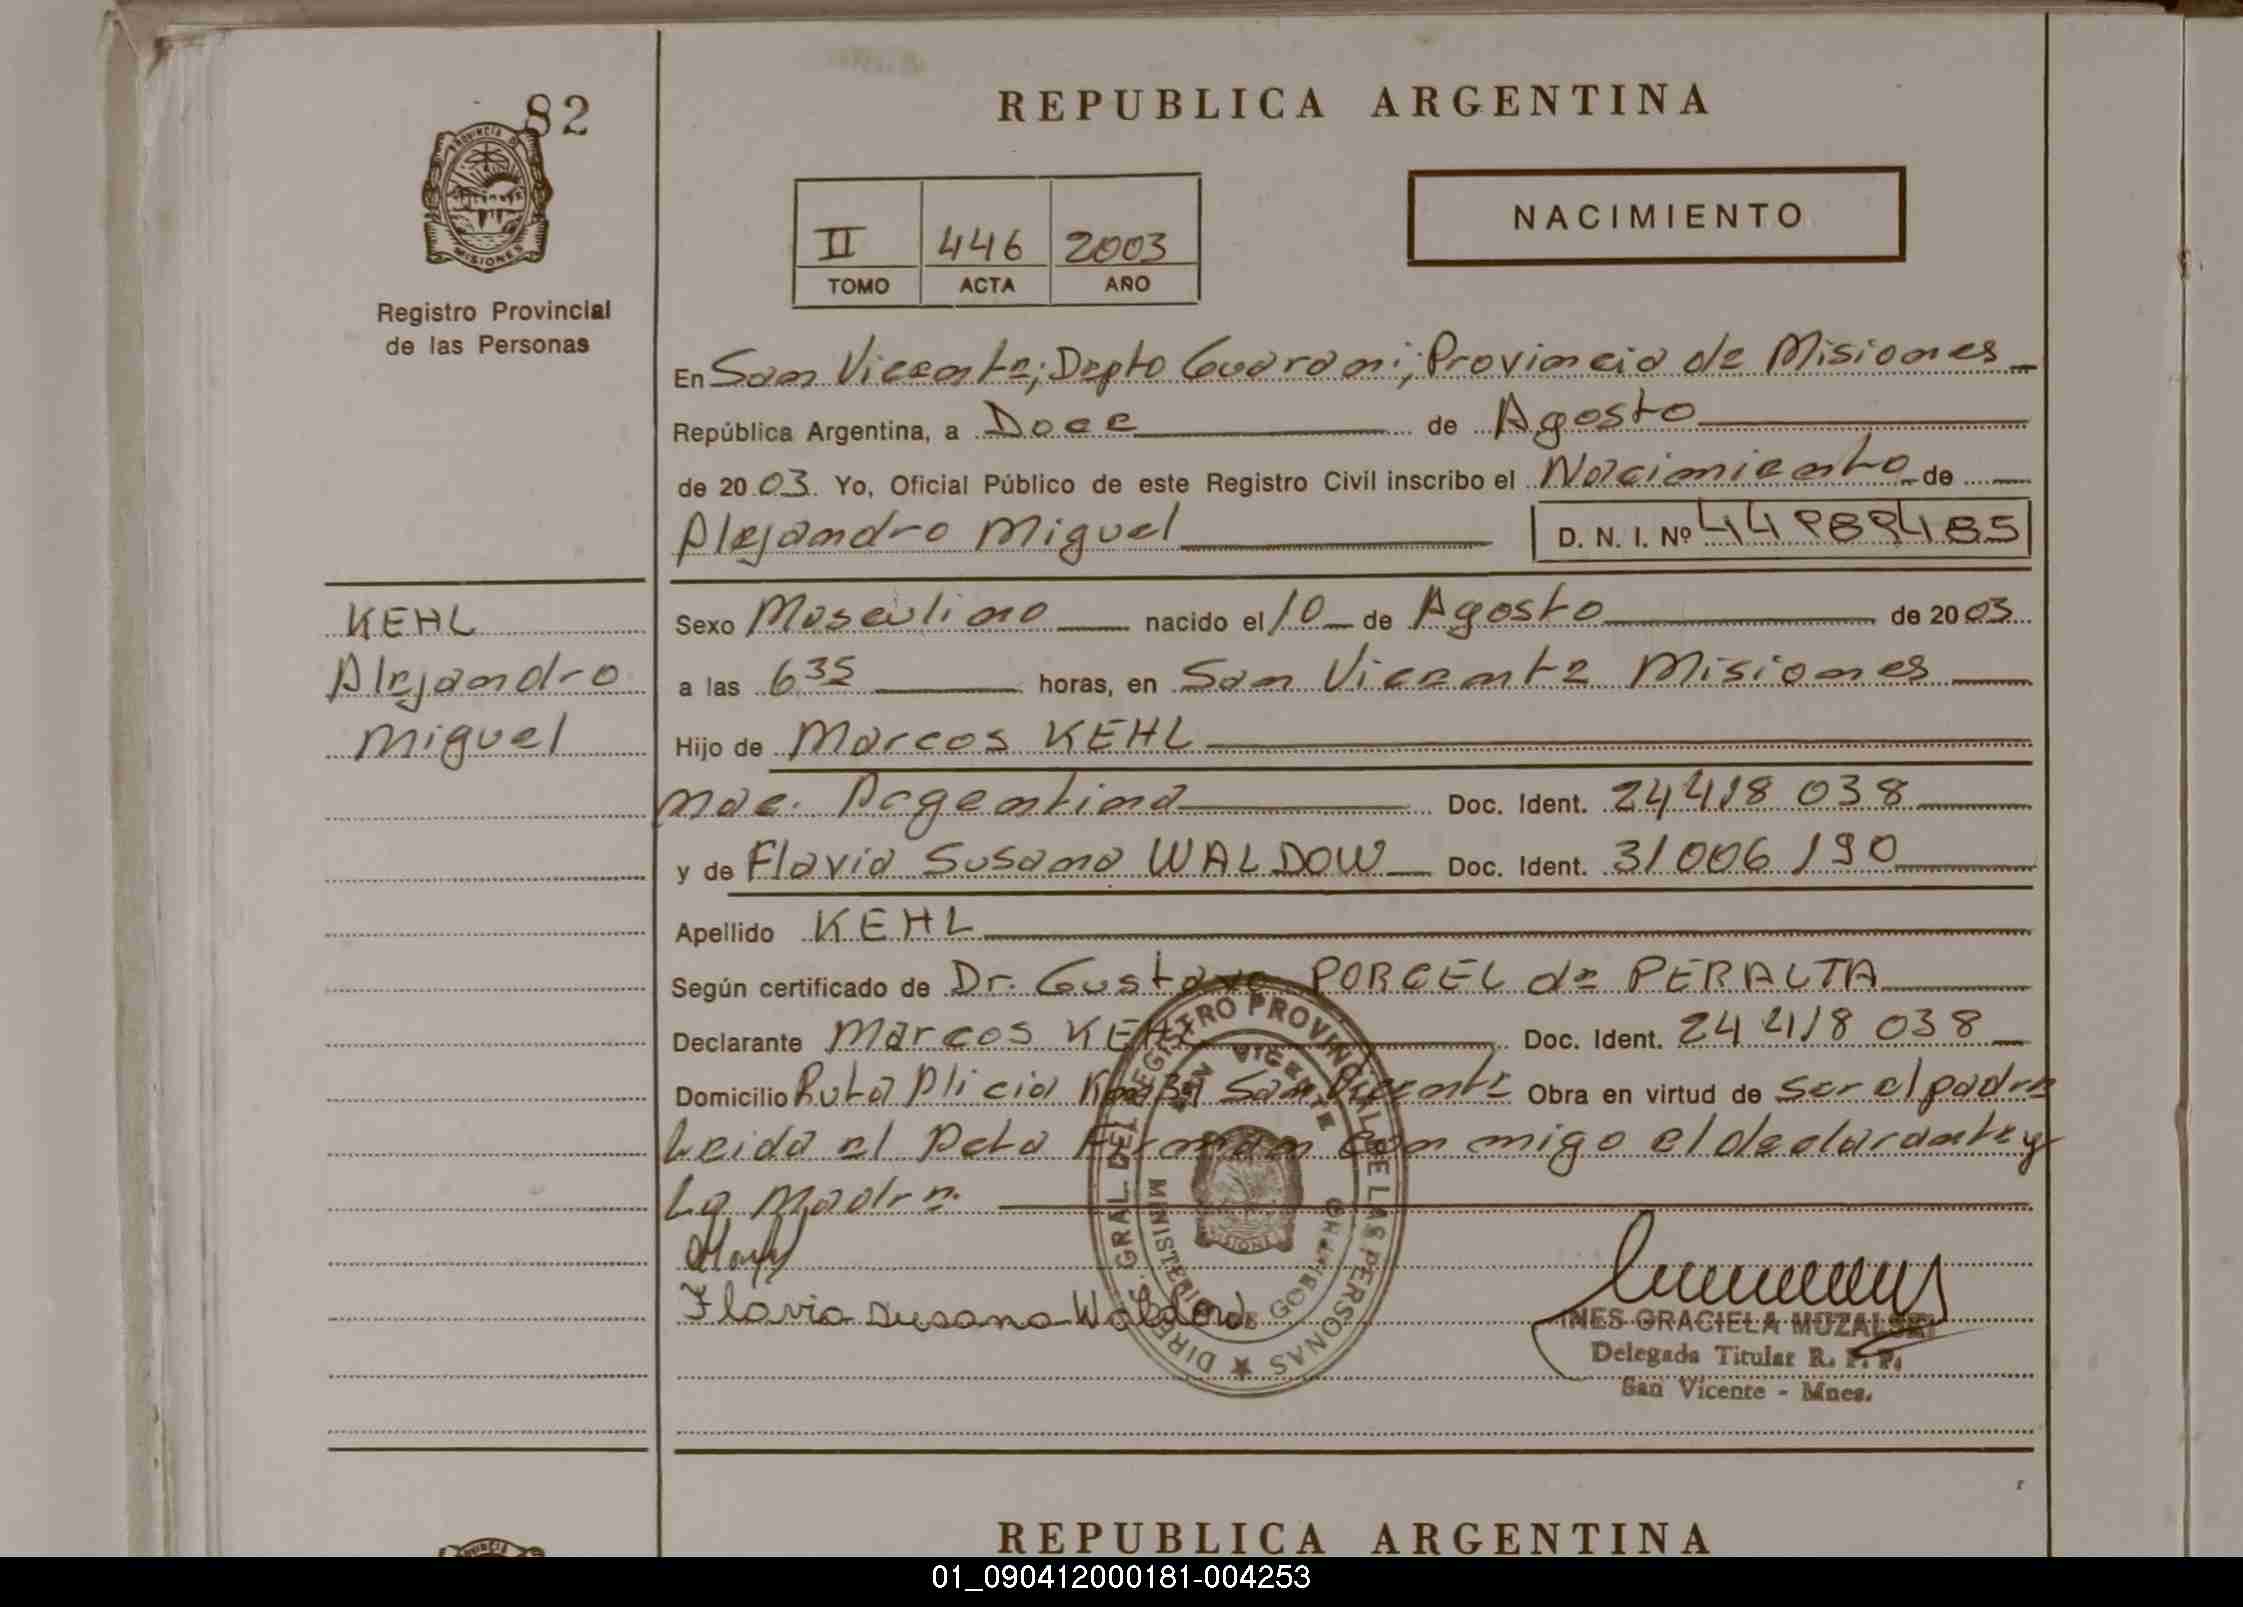 82
PROVINCIA DE
MISIONES
Registro Provincial
de las Personas
REPUBLICA ARGENTINA
II 446 2003
TOMO ACTA AÑO
NACIMIENTO
En San Vicente; Depto Guarani; Provincia de Misiones
República Argentina, a Doce de Agosto
de 2003. Yo, Oficial Público de este Registro Civil inscribo el Nacimiento de
Alejandro Miguel
D. N. I. Nº
KEHL
Alejandro
Miguel
Sexo Masculino nacido el 10 de Agosto de 2003
a las 6 35 horas, en San Vicente Misiones
Hijo de Marcos KEHL
Nac. Argentina Doc. Ident. 24 418 038
y de Flavia Susana WALDOW Doc. Ident. 31 006 190
Apellido KEHL
Según certificado de Dr. Gustavo PORCEL de PERALTA
Declarante Marcos KEHL Doc. Ident. 24 418 038
Domicilio Ruta Alicia San Vicente Obra en virtud de ser el padre
Leida el Acta Firman con migo el declarante y
La Madre.
Flavia Susana Waldow
DIREC. GRAL DEL REGISTRO PROVINCIAL DE LAS PERSONAS
SAN VICENTE
MINISTERIO DE GOBIERNO
MISIONES
INES GRACIELA MUZALSKI
Delegada Titular R. P. P.
San Vicente - Mnes.
REPUBLICA ARGENTINA
01_090412000181-004253